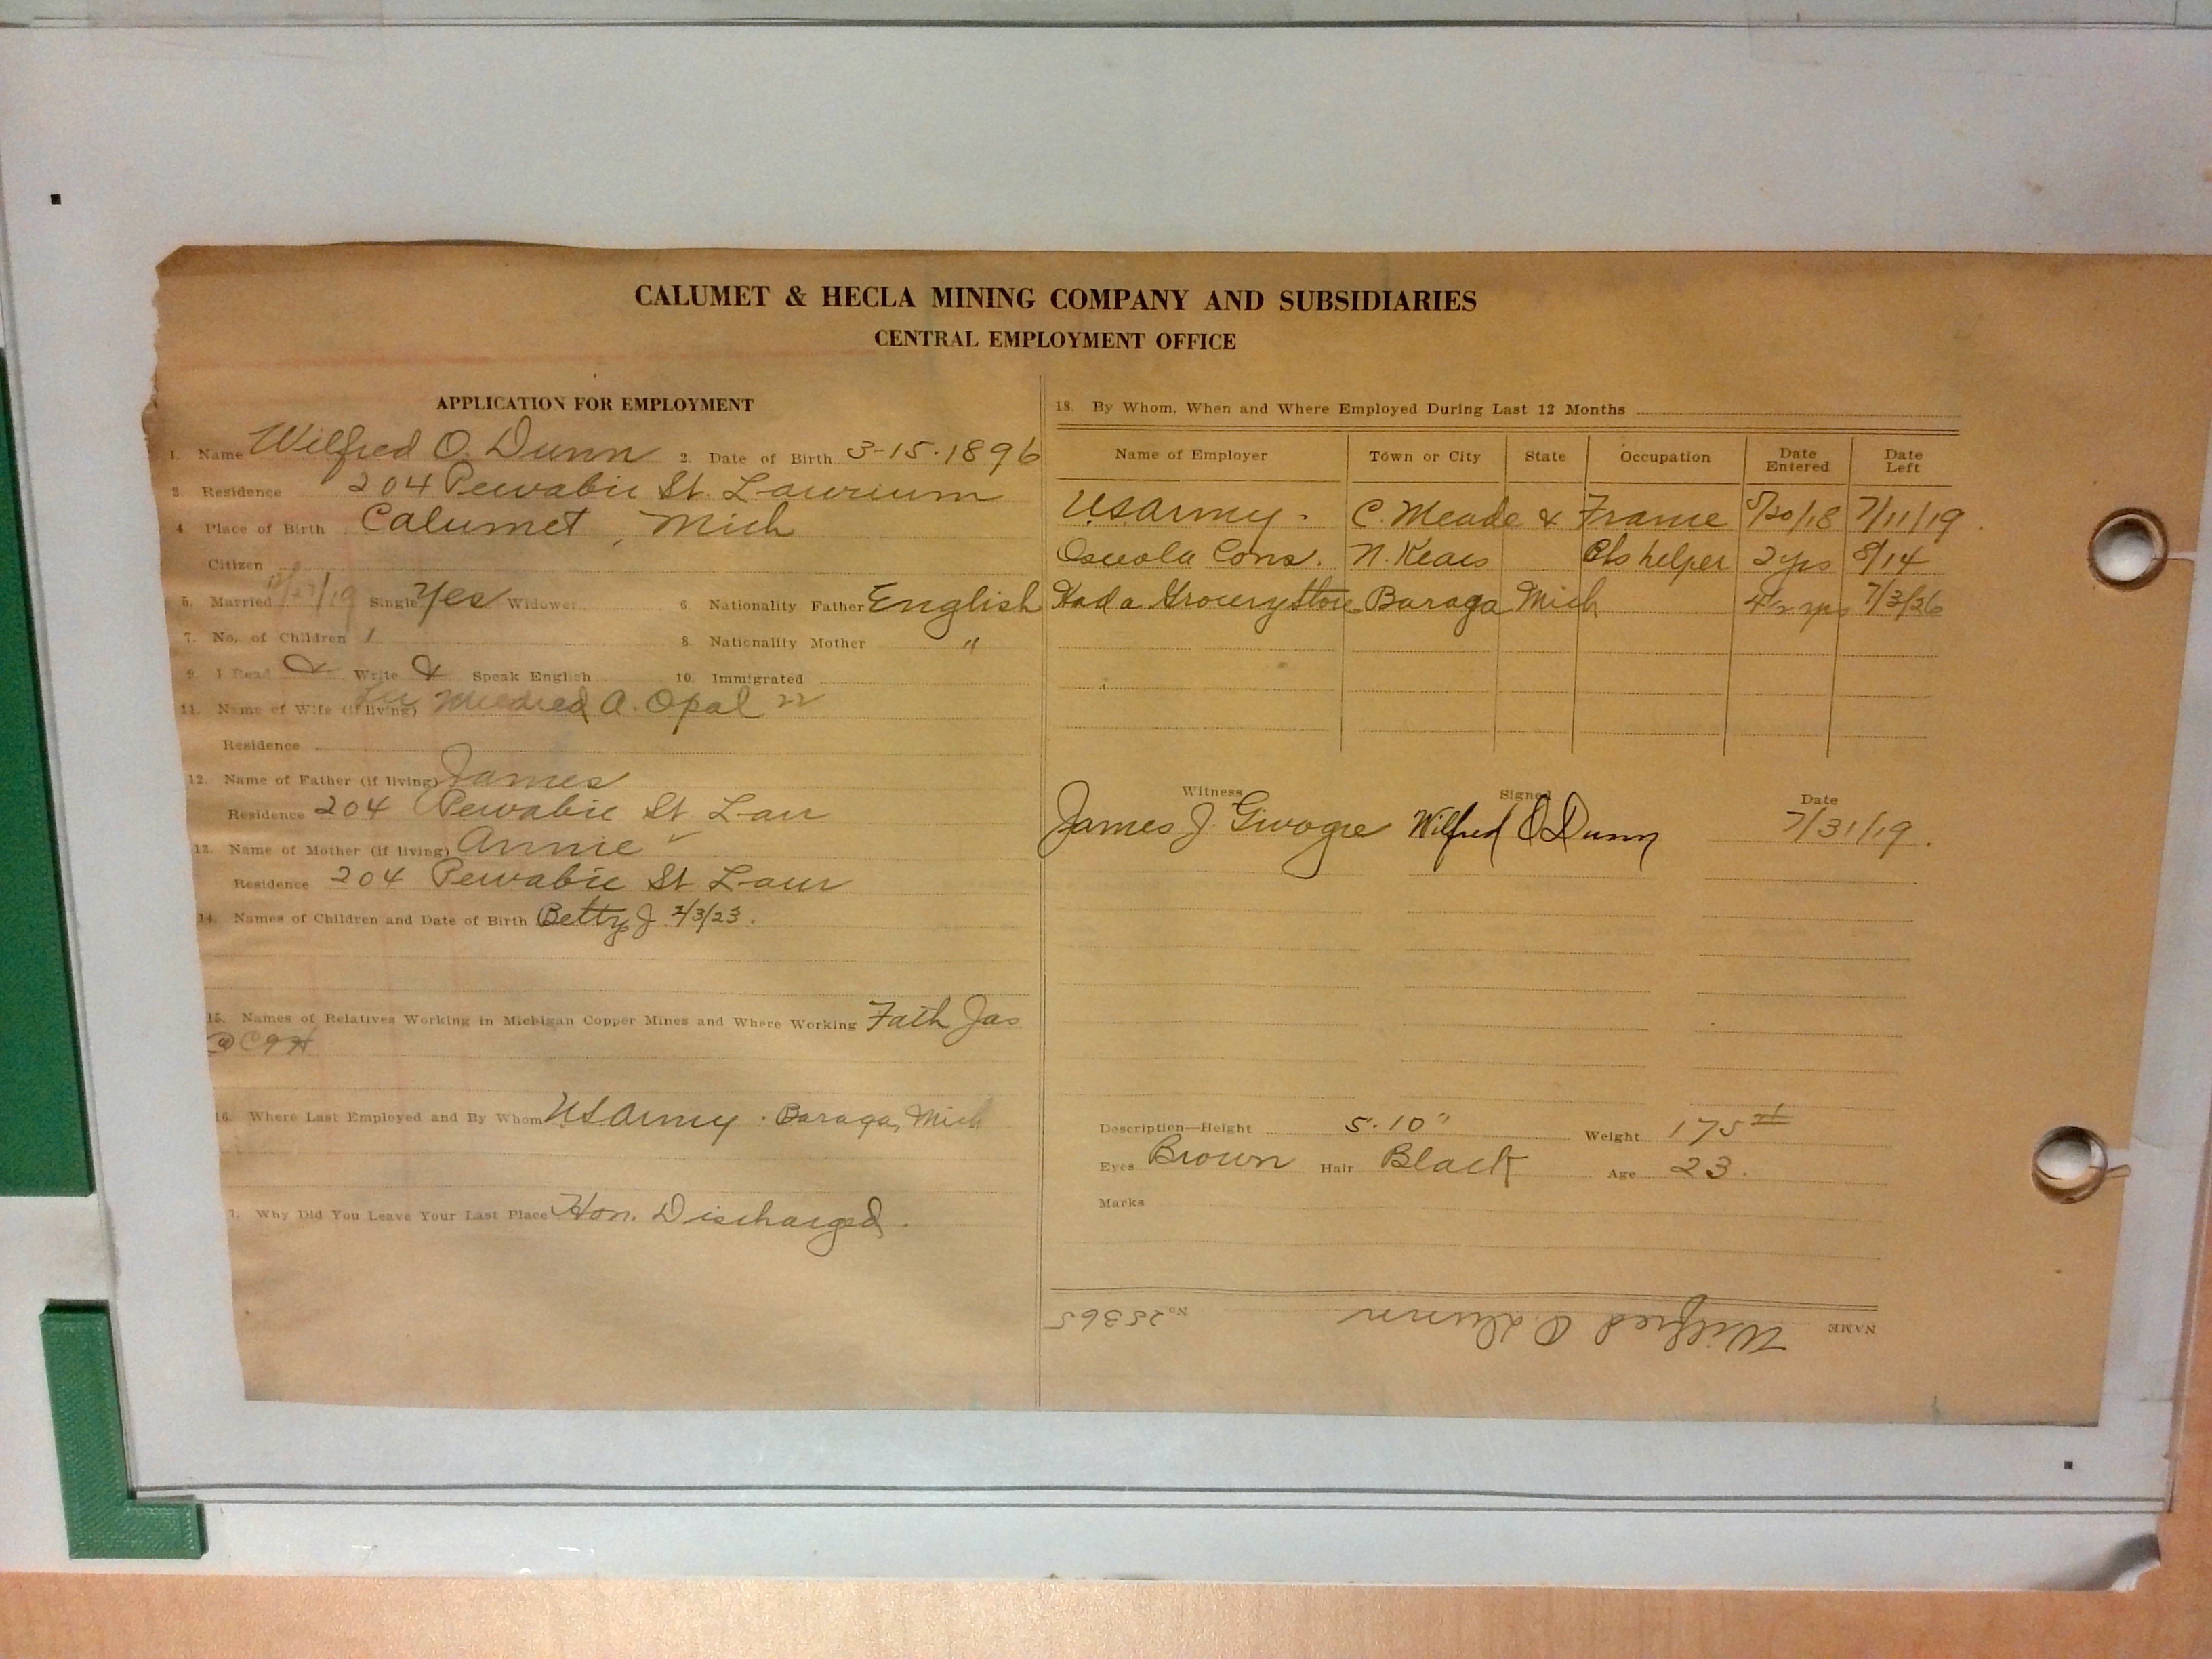 CALUMET & HECLA MINING COMPANY AND SUBSIDIARIES
CENTRAL EMPLOYMENT OFFICE
APPLICATION FOR EMPLOYMENT
1. Name Wilfred O. Dunn 2. Date of Birth 3-15-1896
3. Residence 204 Pewabic St. Laurium
4. Place of Birth Calumet, Mich
Citizen
5. Married Single Yes Widower 6. Nationality Father English
7. No. of Children 1 8. Nationality Mother "
9. I Read & Write & Speak English 10. Immigrated
11. Name of Wife (if living) Mildred A. Opal 22
Residence
12. Name of Father (if living) James
Residence 204 Pewabic St Laur
13. Name of Mother (if living) Annie
Residence 204 Pewabic St. Laur
14. Names of Children and Date of Birth Betty J 2/3/23.
15. Names of Relatives Working in Michigan Copper Mines and Where Working Fath Jas
@ C & H
16. Where Last Employed and By Whom U.S. Army. Baraga, Mich
7. Why Did You Leave Your Last Place Hon. Discharged.
18. By Whom, When and Where Employed During Last 12 Months
Name of Employer Town or City State Occupation Date Entered Date Left
U.S. Army. C. Meade & France 5/20/18 7/11/19.
Osceola Cons. N. Kears helper 2 yrs 8/14
Had a Grocery Store Baraga Mich 4 1/2 yrs 7/3/26
Witness Signed Date
James J. Wilfred O Dunn 7/31/19.
Description—Height 5.10" Weight 175 #
Eyes Brown Hair Black Age 23.
Marks
NAME Wilfred O. Dunn No. 25365